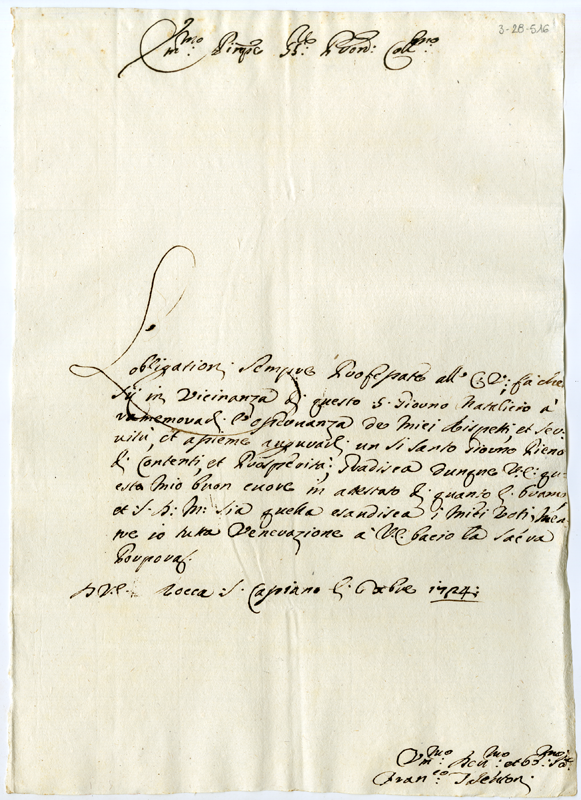 3-28-516
Em.mo Pimpe
L'
obligationi sempre Professate all' E.V: fà che
sij in Vicinanza di questo S. Giorno Natalicio à
ramemorarli l'osservanza dei miei rispeti, et ser-
vitù, et assieme augurarli un si santo Giorno Pieno
di Contenti, et Prosperità; Gradisca Dunque V.E: qu-
esto mio buon cuore in atestato di quanto li bramo
et S. D. M: sia quella esaudisca i miei Voti; men-
tre io tutta Venerazione à V.E. bacio la sacra
Porpora.
D.V.E. Rocca S. Casciano li 6 Xbre 1724:
Um.mo
Fran.co